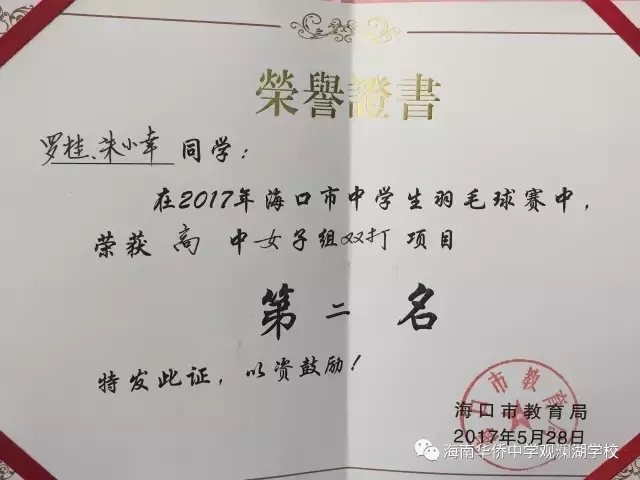 榮譽證書
罗桂、朱小幸 同学：
在2017年海口市中学生羽毛球赛中，
荣获 高 中女子组双打 项目
第 二 名
特发此证，以资鼓励！
海口市教育局
2017年5月28日
海口市教育局
海南华侨中学观澜湖学校